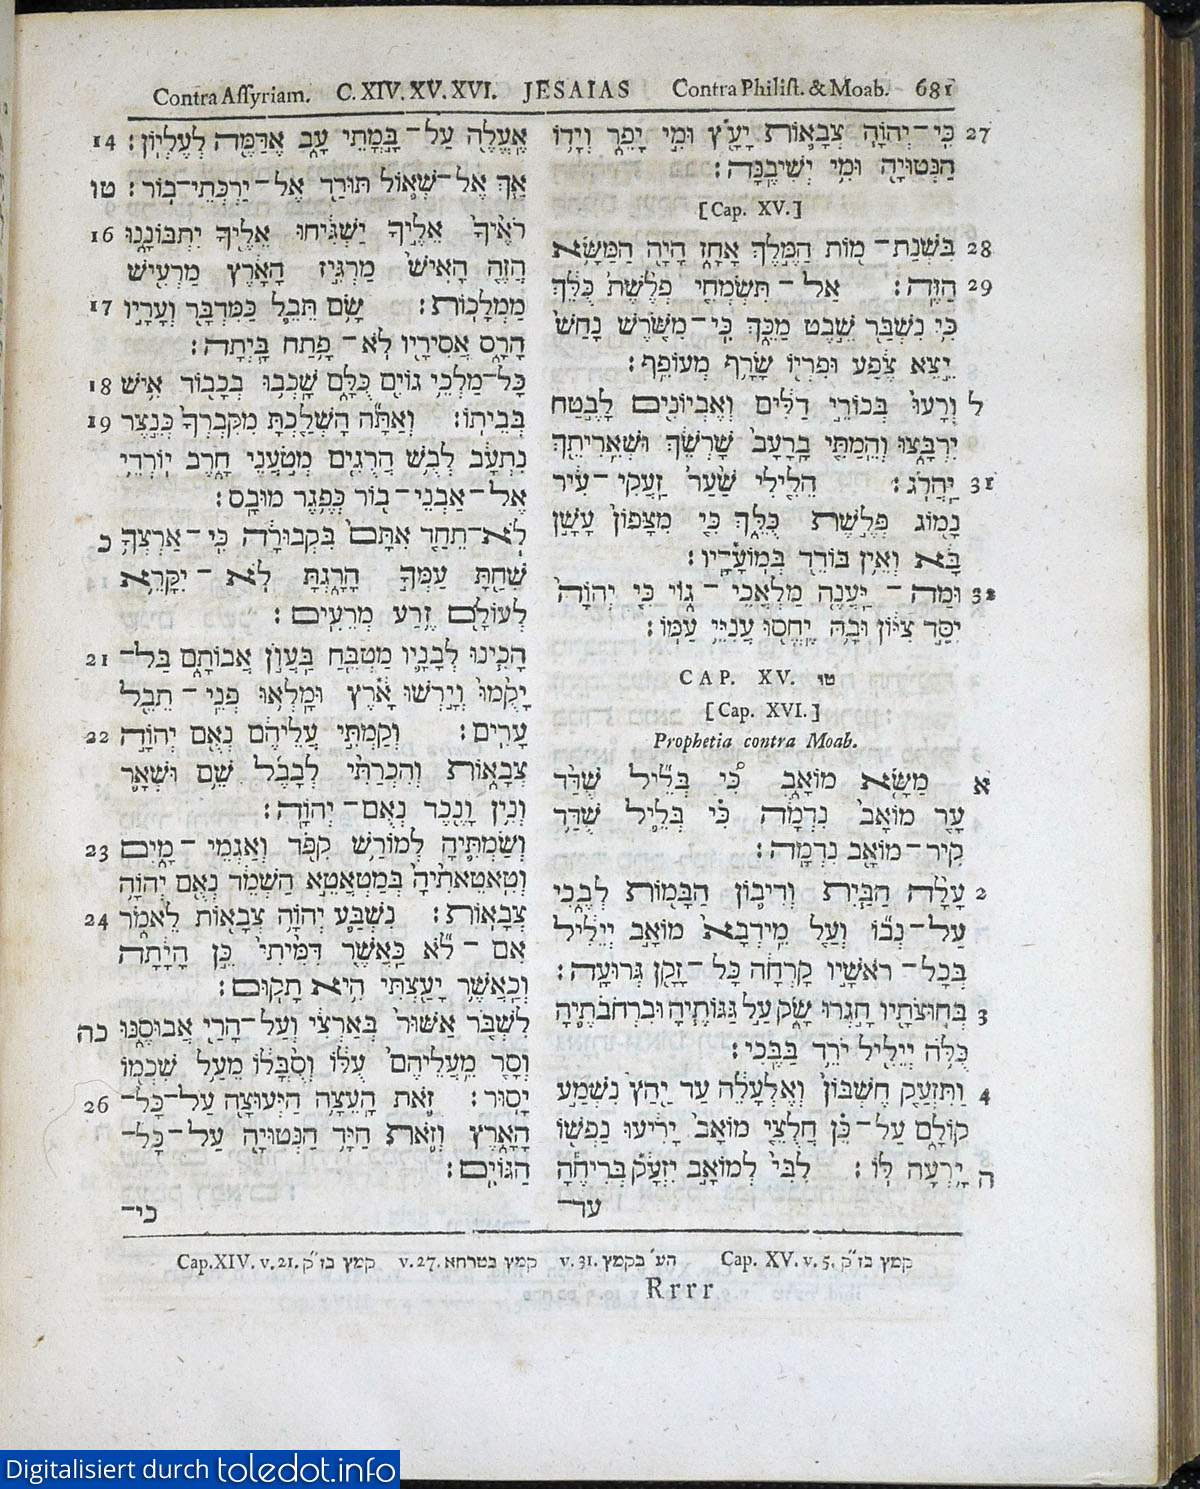 Contra Assyriam. C. XIV. XV. XVI. JESAIAS Contra Philist. & Moab. 681
14 אֶעֱלֶה עַל־ בָּמֳתֵי עָב אֶדַּמֶּה לְעֶלְיוֹן׃
טו אַךְ אֶל־שְׁאוֹל תּוּרַד אֶל־יַרְכְּתֵי־בוֹר׃
16 רֹאֶיךָ אֵלֶיךָ יַשְׁגִּיחוּ אֵלֶיךָ יִתְבּוֹנָנוּ
הֲזֶה הָאִישׁ מַרְגִּיז הָאָרֶץ מַרְעִישׁ
17 מַמְלָכוֹת׃ שָׂם תֵּבֵל כַּמִּדְבָּר וְעָרָיו
הָרָס אֲסִירָיו לֹא־ פָתַח בָּיְתָה׃
18 כָּל־מַלְכֵי גוֹיִם כֻּלָּם שָׁכְבוּ בְכָבוֹד אִישׁ
19 בְּבֵיתוֹ׃ וְאַתָּה הָשְׁלַכְתָּ מִקִּבְרְךָ כְּנֵצֶר
נִתְעָב לְבֻשׁ הֲרֻגִים מְטֹעֲנֵי חָרֶב יוֹרְדֵי
אֶל־אַבְנֵי־בוֹר כְּפֶגֶר מוּבָס׃
כ לֹא־תֵחַד אִתָּם בִּקְבוּרָה כִּי־אַרְצְךָ
שִׁחַתָּ עַמְּךָ הָרָגְתָּ לֹא־יִקָּרֵא
לְעוֹלָם זֶרַע מְרֵעִים׃
21 הָכִינוּ לְבָנָיו מַטְבֵּחַ בַּעֲוֺן אֲבוֹתָם בַּל־
יָקֻמוּ וְיָרְשׁוּ אָרֶץ וּמָלְאוּ פְנֵי־תֵבֵל
22 עָרִים׃ וְקַמְתִּי עֲלֵיהֶם נְאֻם יְהוָה
צְבָאוֹת וְהִכְרַתִּי לְבָבֶל שֵׁם וּשְׁאָר
וְנִין וָנֶכֶד נְאֻם־יְהוָה׃
23 וְשַׂמְתִּיהָ לְמוֹרַשׁ קִפֹּד וְאַגְמֵי־מָיִם
וְטֵאטֵאתִיהָ בְּמַטְאֲטֵא הַשְׁמֵד נְאֻם יְהוָה
24 צְבָאוֹת׃ נִשְׁבַּע יְהוָה צְבָאוֹת לֵאמֹר
אִם־לֹא כַּאֲשֶׁר דִּמִּיתִי כֵּן הָיָתָה
וְכַאֲשֶׁר יָעַצְתִּי הִיא תָקוּם׃
כה לִשְׁבֹּר אַשּׁוּר בְּאַרְצִי וְעַל־הָרַי אֲבוּסֶנּוּ
וְסָר מֵעֲלֵיהֶם עֻלּוֹ וְסֻבֳּלוֹ מֵעַל שִׁכְמוֹ
26 יָסוּר׃ זֹאת הָעֵצָה הַיְּעוּצָה עַל־כָּל־
הָאָרֶץ וְזֹאת הַיָּד הַנְּטוּיָה עַל־כָּל־
הַגּוֹיִם׃
כי־
27 כִּי־יְהוָה צְבָאוֹת יָעָץ וּמִי יָפֵר וְיָדוֹ
הַנְּטוּיָה וּמִי יְשִׁיבֶנָּה׃
[Cap. XV.]
28 בִּשְׁנַת־מוֹת הַמֶּלֶךְ אָחָז הָיָה הַמַּשָּׂא
29 הַזֶּה׃ אַל־תִּשְׂמְחִי פְלֶשֶׁת כֻּלֵּךְ
כִּי נִשְׁבַּר שֵׁבֶט מַכֵּךְ כִּי־מִשֹּׁרֶשׁ נָחָשׁ
יֵצֵא צֶפַע וּפִרְיוֹ שָׂרָף מְעוֹפֵף׃
ל וְרָעוּ בְּכוֹרֵי דַלִּים וְאֶבְיוֹנִים לָבֶטַח
יִרְבָּצוּ וְהֵמַתִּי בָרָעָב שָׁרְשֵׁךְ וּשְׁאֵרִיתֵךְ
31 יַהֲרֹג׃ הֵלִילִי שַׁעַר זַעֲקִי־עִיר
נָמוֹג פְּלֶשֶׁת כֻּלֵּךְ כִּי מִצָּפוֹן עָשָׁן
בָּא וְאֵין בּוֹדֵד בְּמוֹעָדָיו׃
32 וּמַה־יַּעֲנֶה מַלְאֲכֵי־גוֹי כִּי יְהוָה
יִסַּד צִיּוֹן וּבָהּ יֶחֱסוּ עֲנִיֵּי עַמּוֹ׃
CAP. XV. טו
[Cap. XVI.]
Prophetia contra Moab.
א מַשָּׂא מוֹאָב כִּי בְּלֵיל שֻׁדַּד
עָר מוֹאָב נִדְמָה כִּי בְּלֵיל שֻׁדַּד
קִיר־מוֹאָב נִדְמָה׃
2 עָלָה הַבַּיִת וְדִיבוֹן הַבָּמוֹת לְבֶכִי
עַל־נְבוֹ וְעַל מֵידְבָא מוֹאָב יְיֵלִיל
בְּכָל־רֹאשָׁיו קָרְחָה כָּל־זָקָן גְּרוּעָה׃
3 בְּחוּצֹתָיו חָגְרוּ שָׂק עַל גַּגּוֹתֶיהָ וּבִרְחֹבֹתֶיהָ
כֻּלֹּה יְיֵלִיל יֹרֵד בַּבֶּכִי׃
4 וַתִּזְעַק חֶשְׁבּוֹן וְאֶלְעָלֵה עַד יַהַץ נִשְׁמַע
קוֹלָם עַל־כֵּן חֲלֻצֵי מוֹאָב יָרִיעוּ נַפְשׁוֹ
ה יָרְעָה לּוֹ׃ לִבִּי לְמוֹאָב יִזְעָק בְּרִיחֶהָ
עד־
Cap. XIV. v. 21. קמץ בז״ק v. 27. קמץ בטרחא v. 31. הע׳ בקמץ Cap. XV. v. 5. קמץ בז״ק
Rrrr
Digitalisiert durch toledot.info